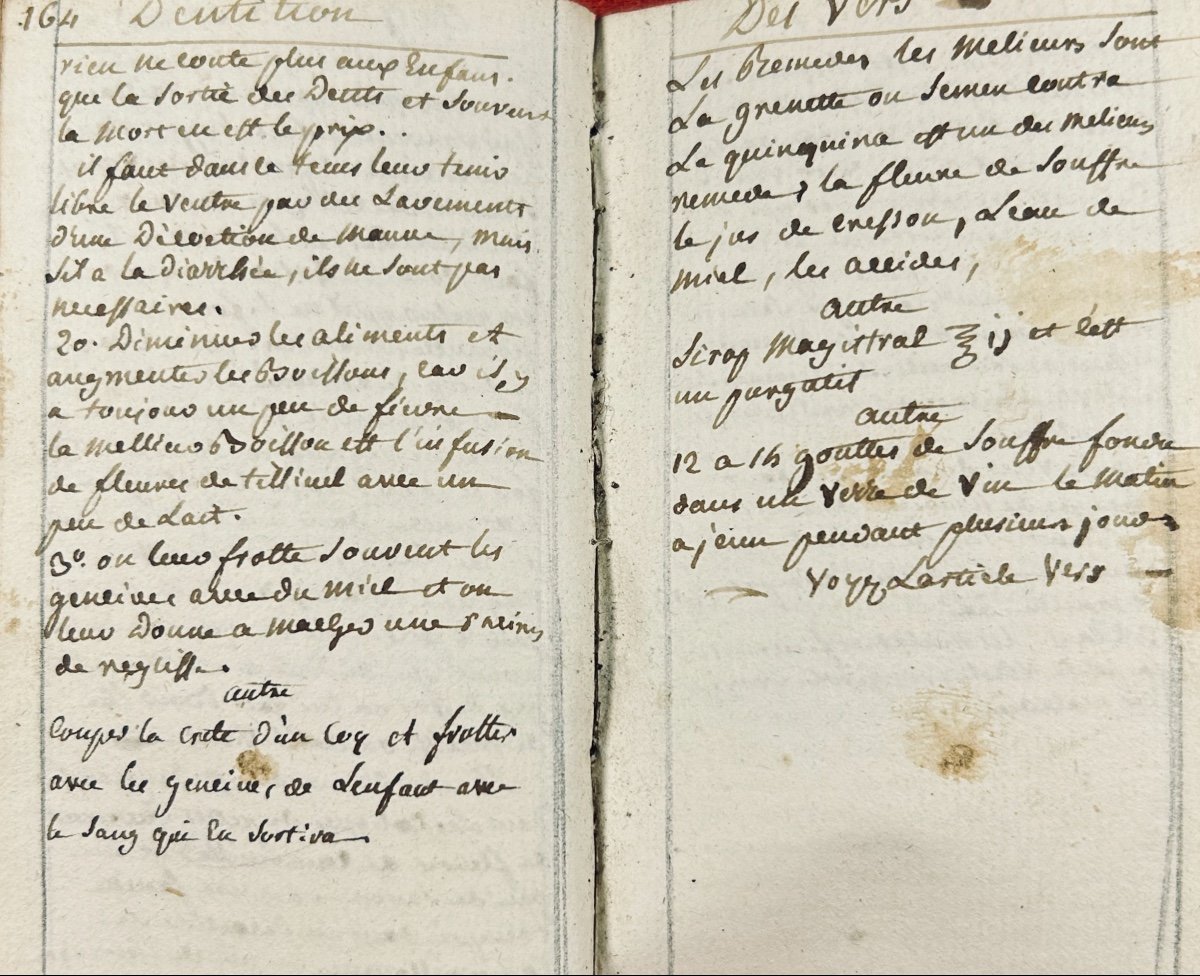 164 Dentition
rien ne coute plus aux Enfans.
que la Sortie des Dents et Souvent
la Mort en est le prix..
il faut dans ce tems leur tenir
libre le Ventre par des Lavements
d'une Décoction de Manne, mais
S'il a la Diarrhée, ils ne sont pas
necessaires.
20. Diminuer les aliments et
augmenter les Boissons, car il y
a toujour un peu de fievre
la Mellieur Boisson est l'infusion
de fleures de tillieul avec un
peu de Lait.
3º. on leur frotte Souvent les
gencives avec du Miel et on
leur Donne a macher une
de reglisse.
autre
Couper la crete d'un Coq et frotter
avec les gencives de L'enfant avec
le Sang qui En Sortira
Des Vers
Les Remedes les Melieurs Sont
La grenette ou Semen Contra
Le quinquina est un des melieurs
remedes, la fleure de Souffre
le jus de cresson, L'eau de
Miel, les accides,
autre
Sirop Magistral ℥ ij et c'est
un purgatif
autre
12 a 14 gouttes de Souffre fondu
dans un Verre de Vin le Matin
a jeun pendant plusieurs jours
Voyez L'article Vers